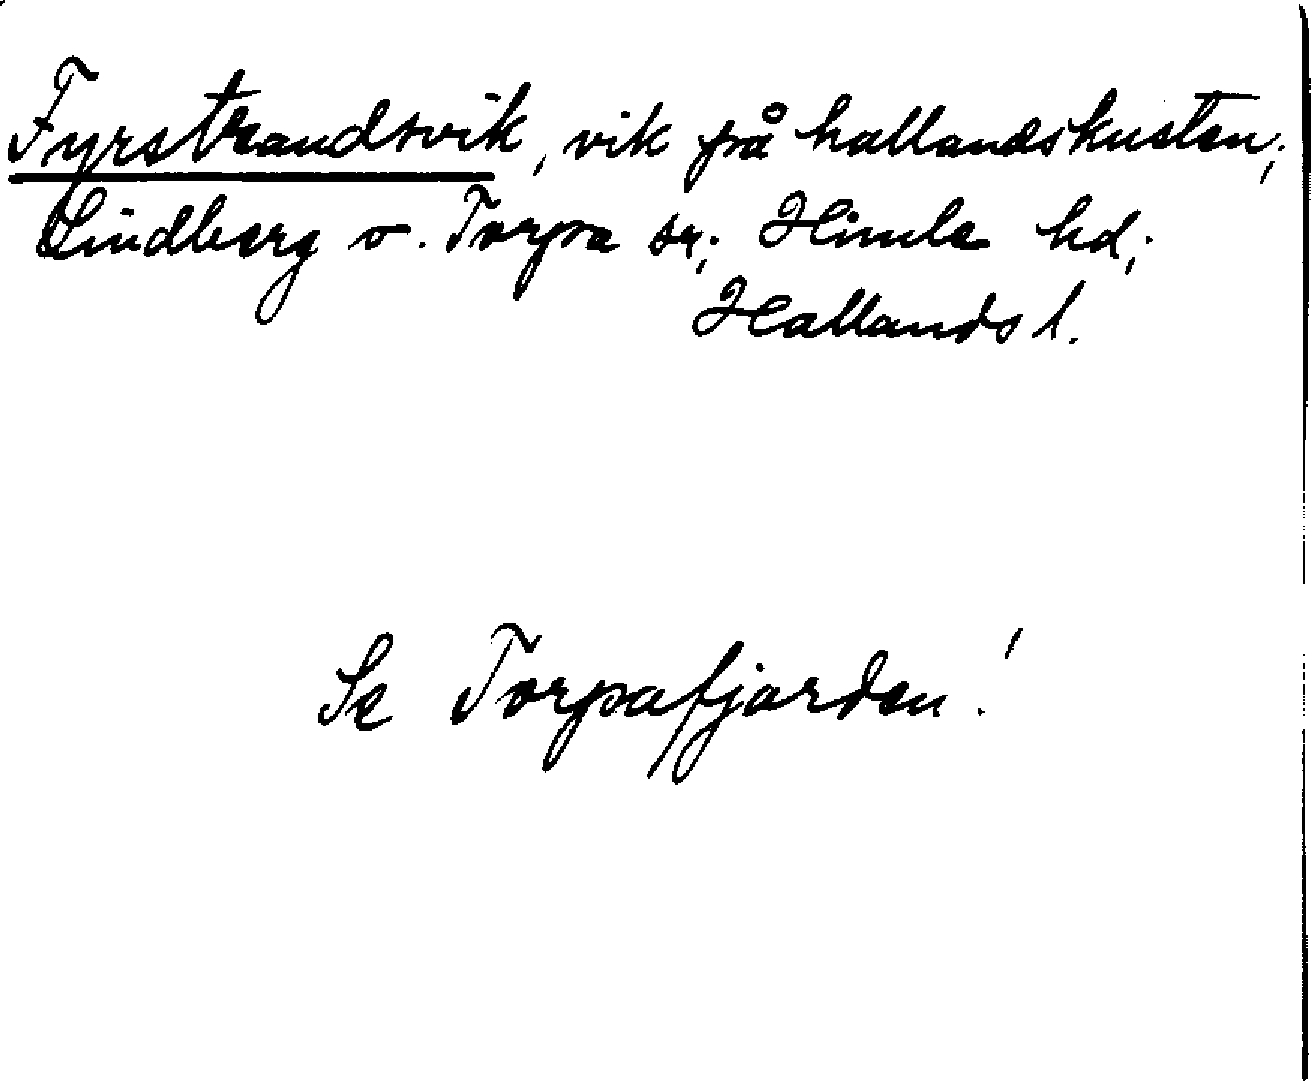 Fyrstrandsvik, vik på hallandskusten;
Lindberg o. Torpa sr; Himle hd;
Hallands l.
Se Torpafjorden!